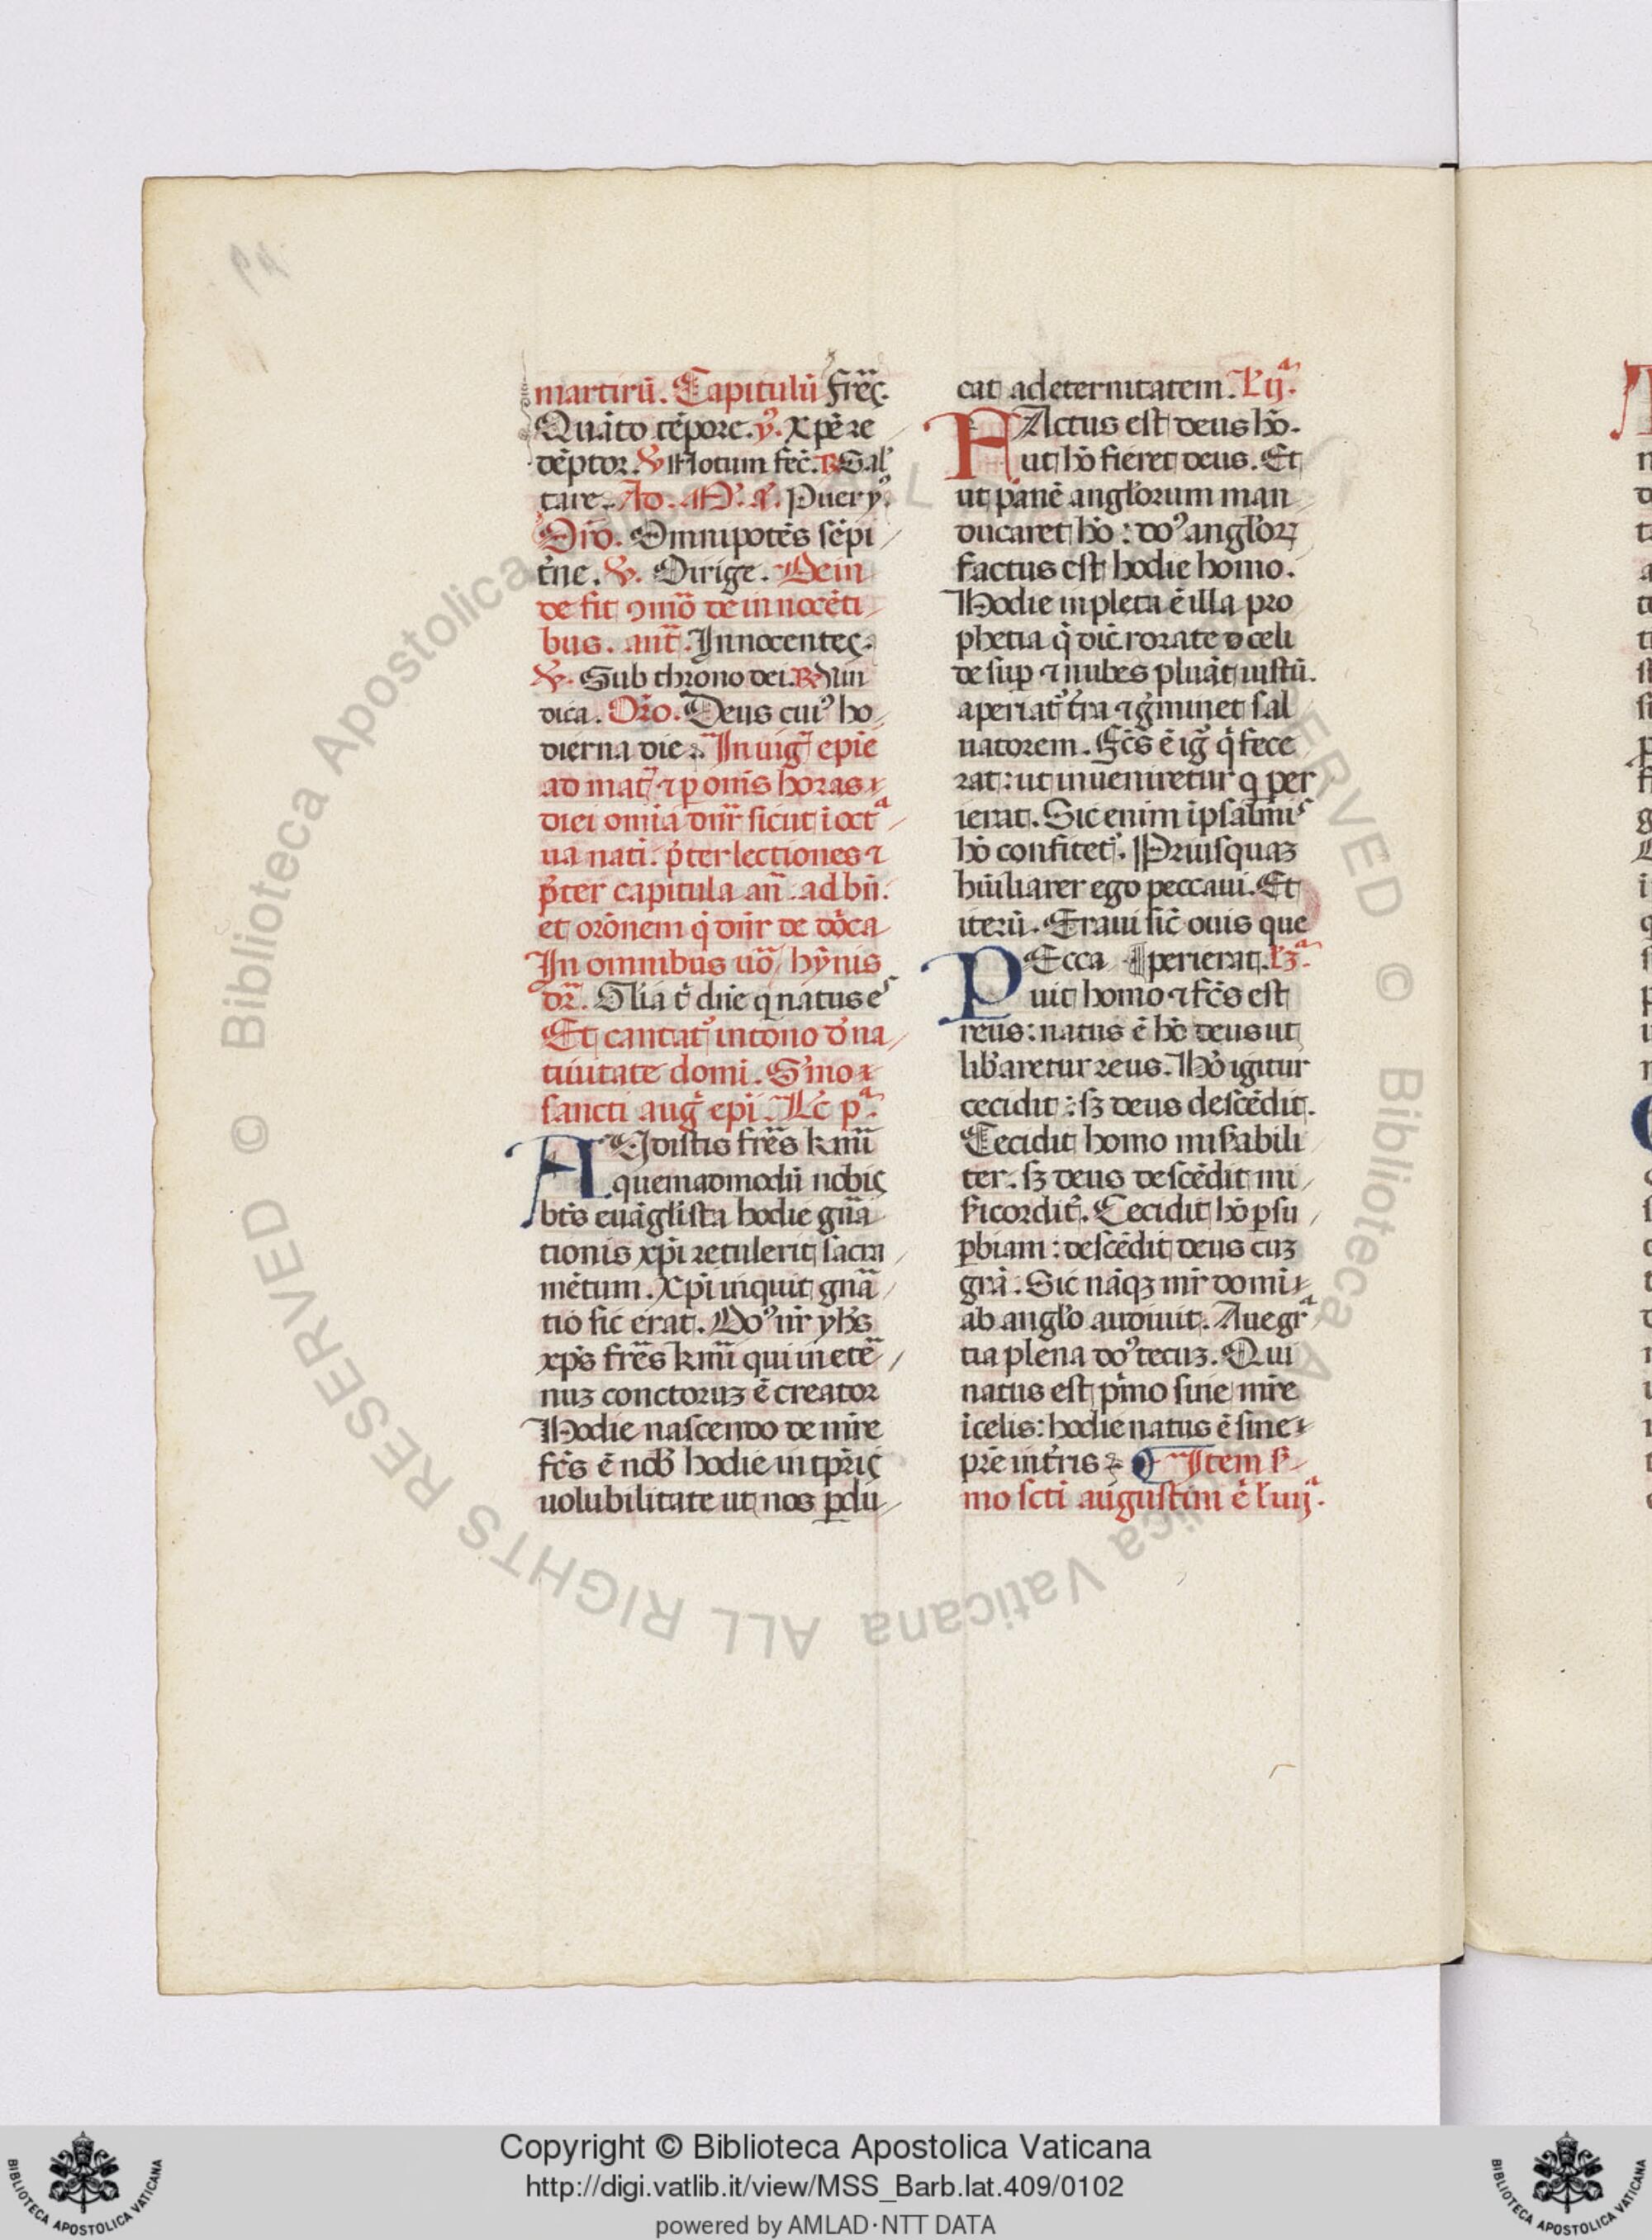 martirū. Capitulū Fres̄.
Quāto tēpore. ỹ. xp̄e re
dēptor. ℣ Notum fec̄. ℟ Sal
tare. Ad. Puer
Orō. Omnipotēs sēpi
t̄ne. ℣. Dirige. Dein
de fit ꝯmō de innocēti
bus. ant̄. Innocentes.
℣. Sub throno dei. ℟ Uin
dica. Orō. Deus cuiꝰ ho
dierna die. In uiḡ epīe
ad mat̄ ⁊ ꝑ om̄s horas
diei omīa dn̄r sicut ī octᵃ
ua nati. p̄ter lectiones ⁊
p̄ter capitula an̄. ad bn̄.
et orōnem q̄ dn̄r de dōca
In omnibus uō hȳnis
dr̄. Gl̄ia t̄ dn̄e q natus eˢ
Et cantat᷑ in tono d̄ na
tiuitate domi. S̄mo
sancti auḡ epī. Lc̄ pᵃ.
AUdistis fr̄es km̄i
quemadmodū nobis
bt̄s euāgl̄ista hodie gn̄a
tionis xp̄i retulerit sacra
mētum. Xp̄i inquit gn̄a
tio sic erat. Doꝰ nr̄ yhs̄
xp̄s fr̄es km̄i qui in etē
nuꝫ conctoruꝫ ē creator
Hodie nascendo de mr̄e
fc̄s ē nob̄ hodie in tp̄ris
uolubilitate ut nos ꝑdu
cat ad eternitatem. L̄ijᵃ.
FActus est deus hō.
ut hō fieret deus. Et
ut panē angl̄orum man
ducaret hō: doꝰ angl̄oꝝ
factus est hodie homo.
Hodie inpleta ē illa pro
phetia q̄ dic̄ rorate celi
de suꝑ ⁊ nubes pluāt iustū.
aperiat᷑ t̄ra ⁊ ḡminet sal
uatorem. Fc̄s ē iḡ q̄ fece
rat: ut inueniretur q per
ierat. Sic enim ī psalmiˢ
hō confitet᷑. Priusquaꝫ
hūiliarer ego peccaui. Et
iterū. Eraui sic̄ ouis que
PEcca perierat. L̄ꝫᵃ.
uit homo ⁊ fc̄s est
reus: natus ē hō deus ut
lib̄aretur reus. Hō igitur
cecidit: sꝫ deus descēdit.
Cecidit homo mis̄abili
ter. sꝫ deus descēdit mi
s̄icordit̄. Cecidit hō ꝑ su
ꝑbiam: descēdit deus cuꝫ
grā. Sic nāqꝫ mr̄ domī
ab angl̄o audiuit. Aue grᵃ
tia plena doꝰ tecuꝫ. Qui
natus est p̄mo sine mr̄e
ī celis: hodie natus ē sine
pr̄e in t̄ris. Item s̄
mo sc̄ti augustini ē l̄iiijᵃ.
© Biblioteca Apostolica Vaticana ALL RIGHTS RESERVED
Copyright © Biblioteca Apostolica Vaticana
http://digi.vatlib.it/view/MSS_Barb.lat.409/0102
powered by AMLAD·NTT DATA
BIBLIOTECA APOSTOLICA VATICANA
BIBLIOTECA APOSTOLICA VATICANA